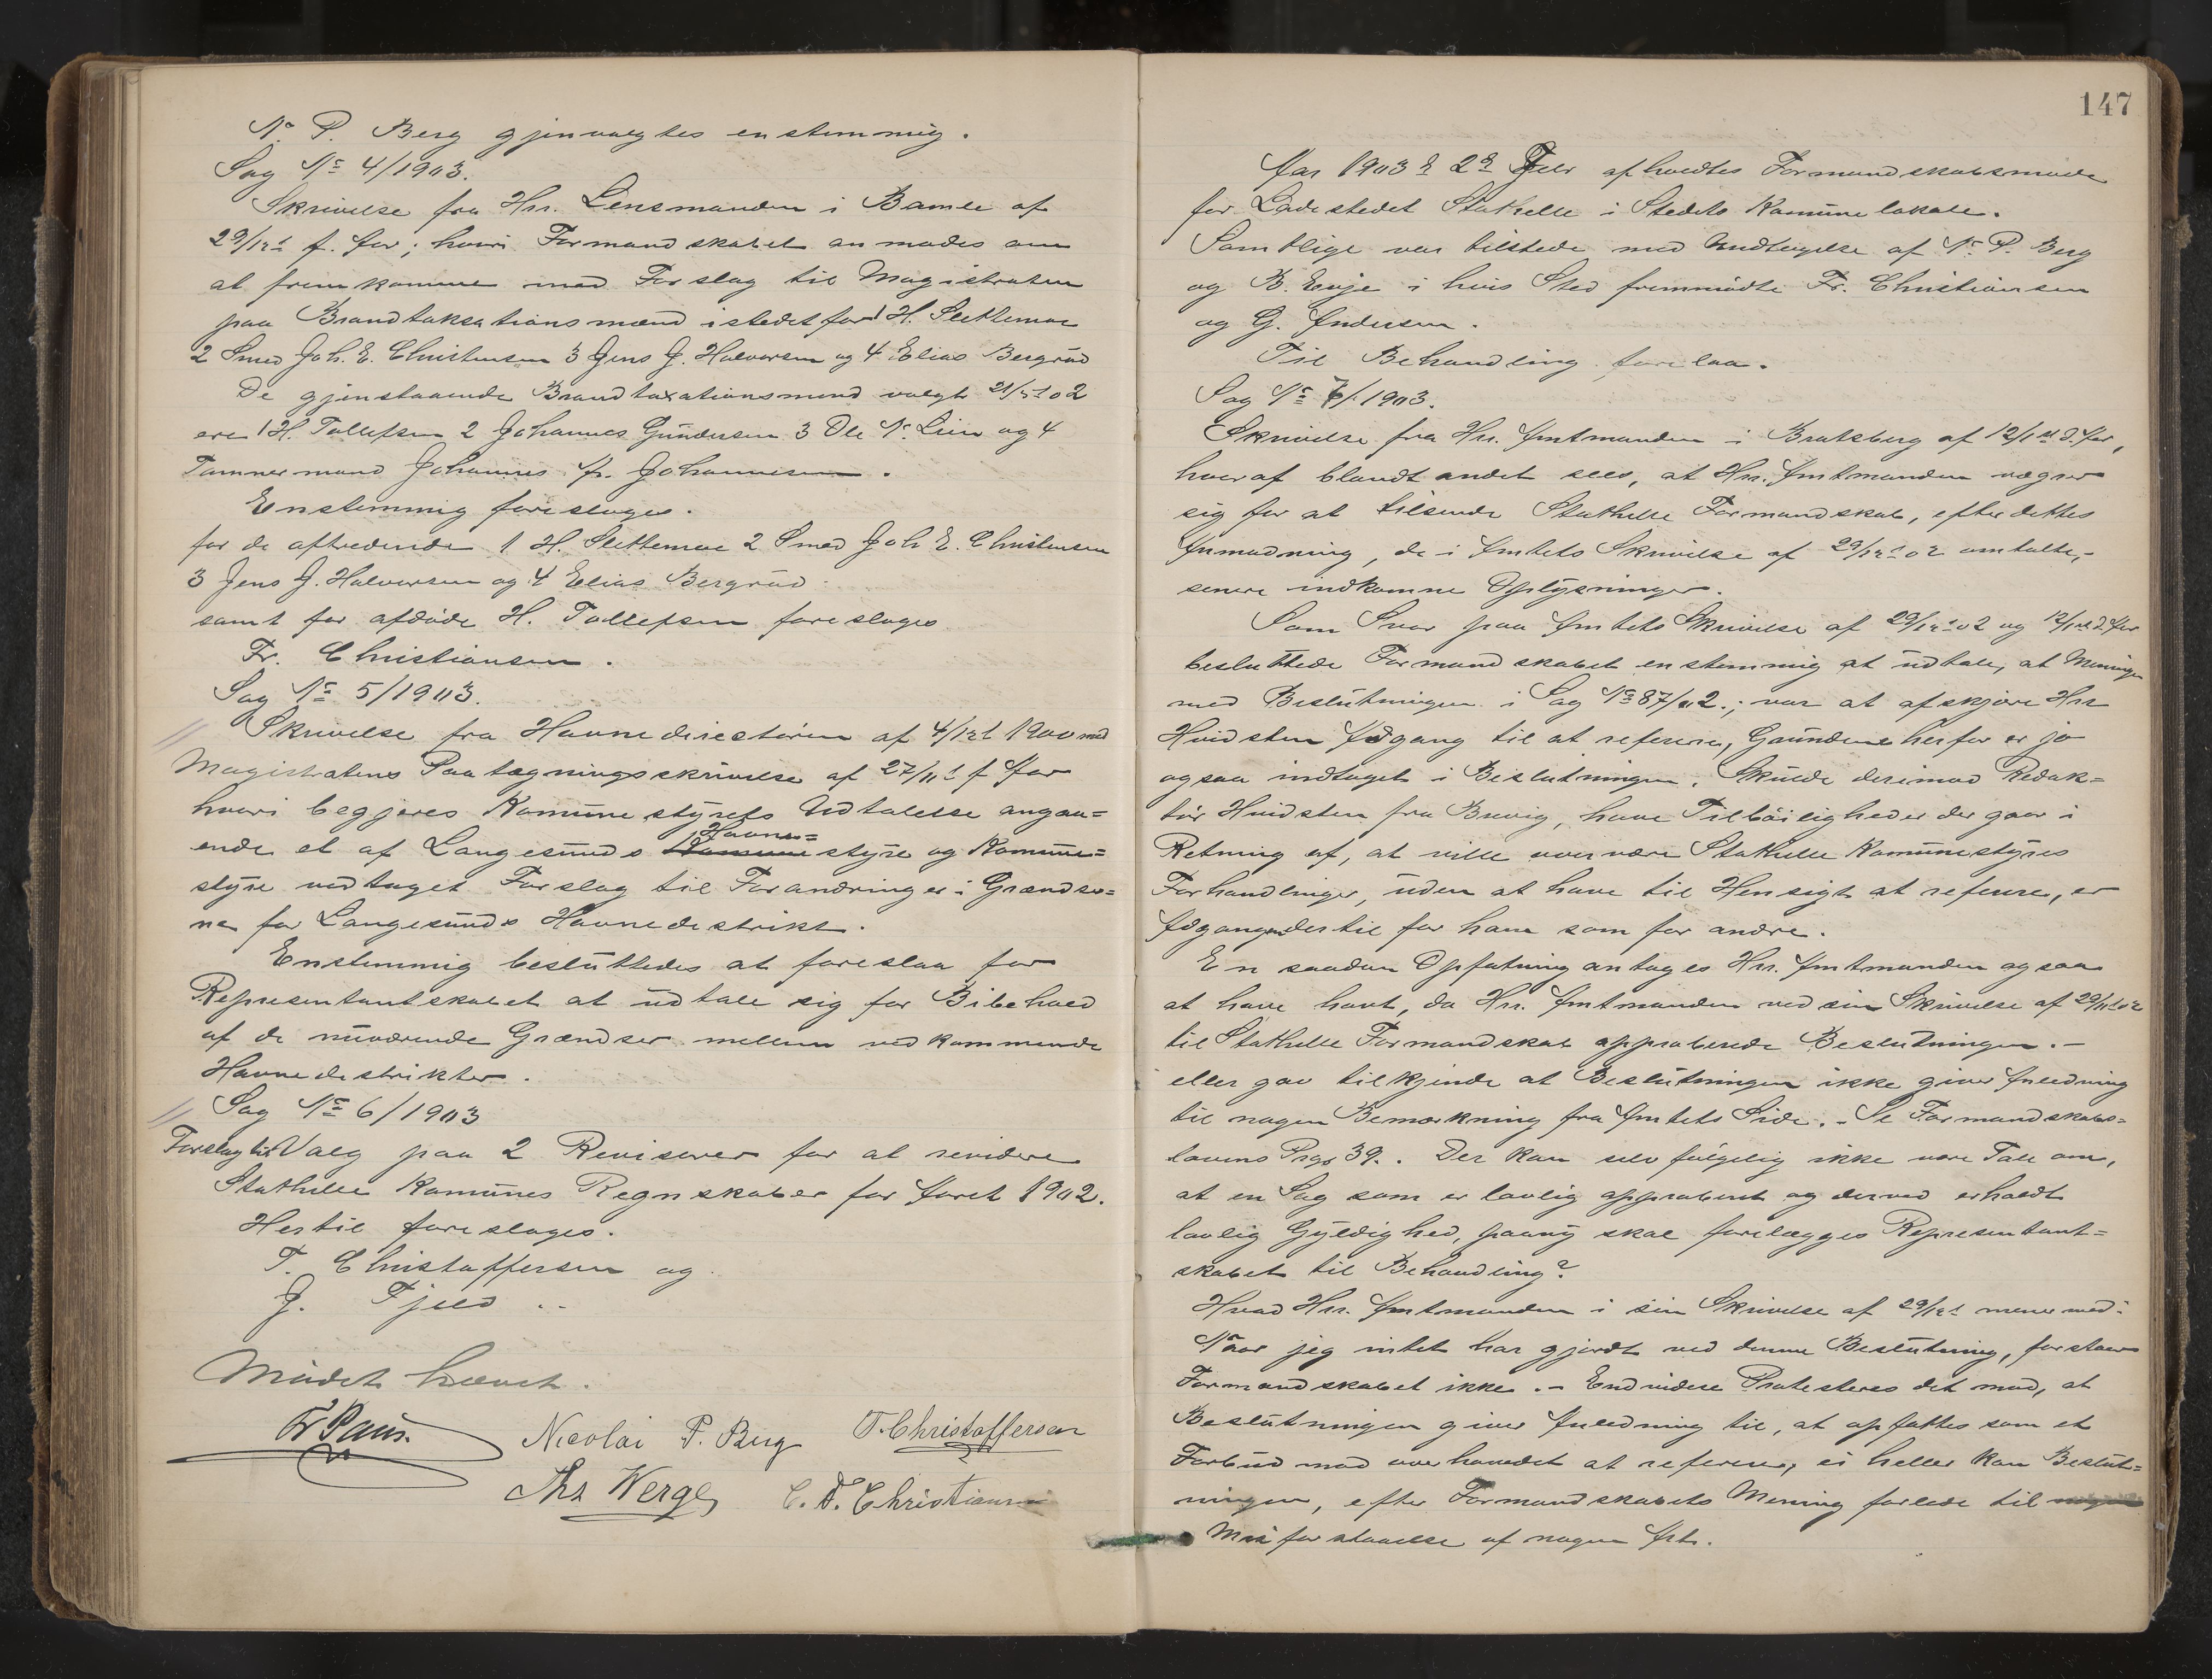 N. P. Berg gjenvalgtes enstemmig.
Sag No 4/1903.
Skrivelse fra Hrr. Lensmanden i Bamle af
29/12 f. Aar; hvori Formandskabet anmodes om
at fremkomme med Forslag til Magistraten
paa Brandtaksationsmænd istedetfor 1 H. Slettemoe
2 Smed Joh. E. Christensen 3 Jens J. Halvorsen og 4 Elias Bergrud
De gjenstaaende Brandtaxationsmend valgt 21/5 02
ere 1 H. Tollefsen 2 Johannes Gundersen 3 Ole N. Lien og 4
Tømmermand Johannes A. Johannesen.
Enstemmig foresloges.
for de aftredende 1 H. Slettemoe 2 Smed Joh E. Christensen
3 Jens J. Halvorsen og 4 Elias Bergrud
samt for afdöde H. Tollefsen foresloges
Fr. Christiansen.
Sag No 5/1903.
Skrivelse fra Havnedirectören af 4/12 1900 med
Magistratens Paategningsskrivelse af 27/11 f Aar
hvori begjæres Komünestyrets Udtalelse angaa=
ende et af Langesunds Havne= styre og Komüne=
styre vedtaget Forslag til Forandringer i Grændser=
ne for Langesunds Havnedestrikt.
Enstemmig besluttedes at foreslaa for
Representantskabet at udtale sig for Bibehold
af de nuværende Grændser mellem vedkommende
Havnedestrikter.
Sag No 6/1903
Forslag til Valg paa 2 Revisorer for at revidere
Stathelle Komünes Regnskaber for Aaret 1902.
Hertil foresloges.
T. Christoffersen og
J. Fjeld
Mödet hævet.
Fr Paus. Nicolai P. Berg T. Christoffersen
Ths Werge C. F. Christiansen
147
Aar 1903 d 2d Febr afholdtes Formandskabsmøde
for Ladestedet Stathelle i Stedets Komünelokale.
Samtlige var tilstede med Undtagelse af N. P. Berg
og B. Eeuje i hvis Sted fremmödte Fr. Christiansen
og G. Andersen.
Til Behandling forelaa.
Sag No 7/1903.
Skrivelse fra Hrr. Amtmanden i Bratsberg af 12/1 d. Aar,
hvoraf blandt andet sees, at Hrr. Amtmanden vægrer
sig for at tilsende Stathelle Formandskab, efter dettes
Anmodning, de i Amtets Skrivelse af 29/12 02 omtalte,
senere indkomne Oplysninger.
Som Svar paa Amtets Skrivelse af 29/12 02 og 12/1 d. Aar
besluttede Formandskabet enstemmig at udtale, at Meningen
med Beslutningen i Sag No 87/02.; var at afskjøre Hrr
Hvidsten Adgang til at referere, Grundene herfor er jo
ogsaa indtaget i Beslutningen. Skulde derimod Redak=
tör Hvidsten fra Brevig, have Tilböiligheder der gaar i
Retning af, at ville overvære Stathelle Komünestyres
Forhandlinger, uden at have til Hensigt at referere, er
Adgangen dertil for ham som for andre.
En saadan Opfatning antages Hrr. Amtmanden ogsaa
at have havt, da Hrr. Amtmanden ved sin Skrivelse af 29/11 02
til Stathelle Formandskab approberede Beslutningen.-
eller gav tilkjende at Beslutningen ikke giver Anledning
til nogen Bemærkning fra Amtets Side.- Se Formandskabs=
lovens Prgr 39.. Der kan selvfølgelig ikke være Tale om,
at en Sag som er lovlig approberet og derved erholdt
lovlig Gyldighed, paany skal forelægges Representant=
skabet til Behandling?
Hvad Hrr. Amtmanden i sin Skrivelse af 29/12 mener med:
Naar jeg intet har gjordt ved denne Beslutning, forstaar
Formandskabet ikke.- Endvidere Protesteres det mod, at
Beslutningen giver Anledning til, at opfattes som et
Forbud mod overhovedet at referere, ei heller kan Beslut=
ningen, efter Formandskabets Mening forlede til
Misforstaaelse af nogen Art.